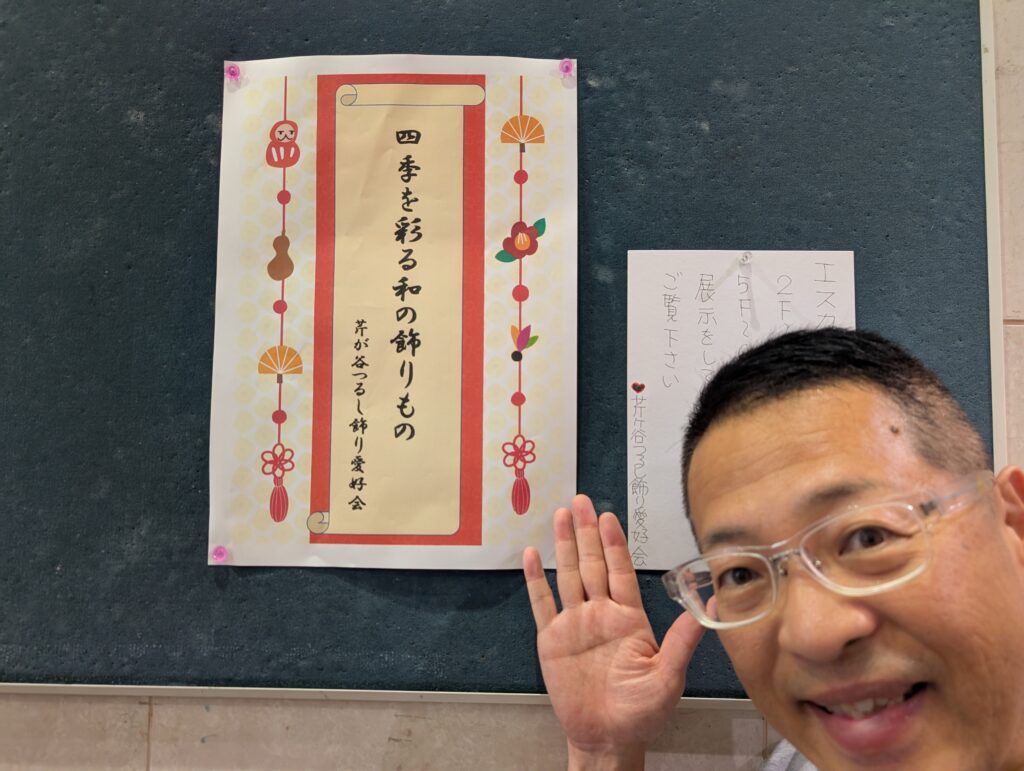 四季を彩る和の飾りもの
芹が谷つるし飾り愛好会
エスカ
2F
5F~
展示をして
ご覧下さい
芹ケ谷つるし飾り愛好会